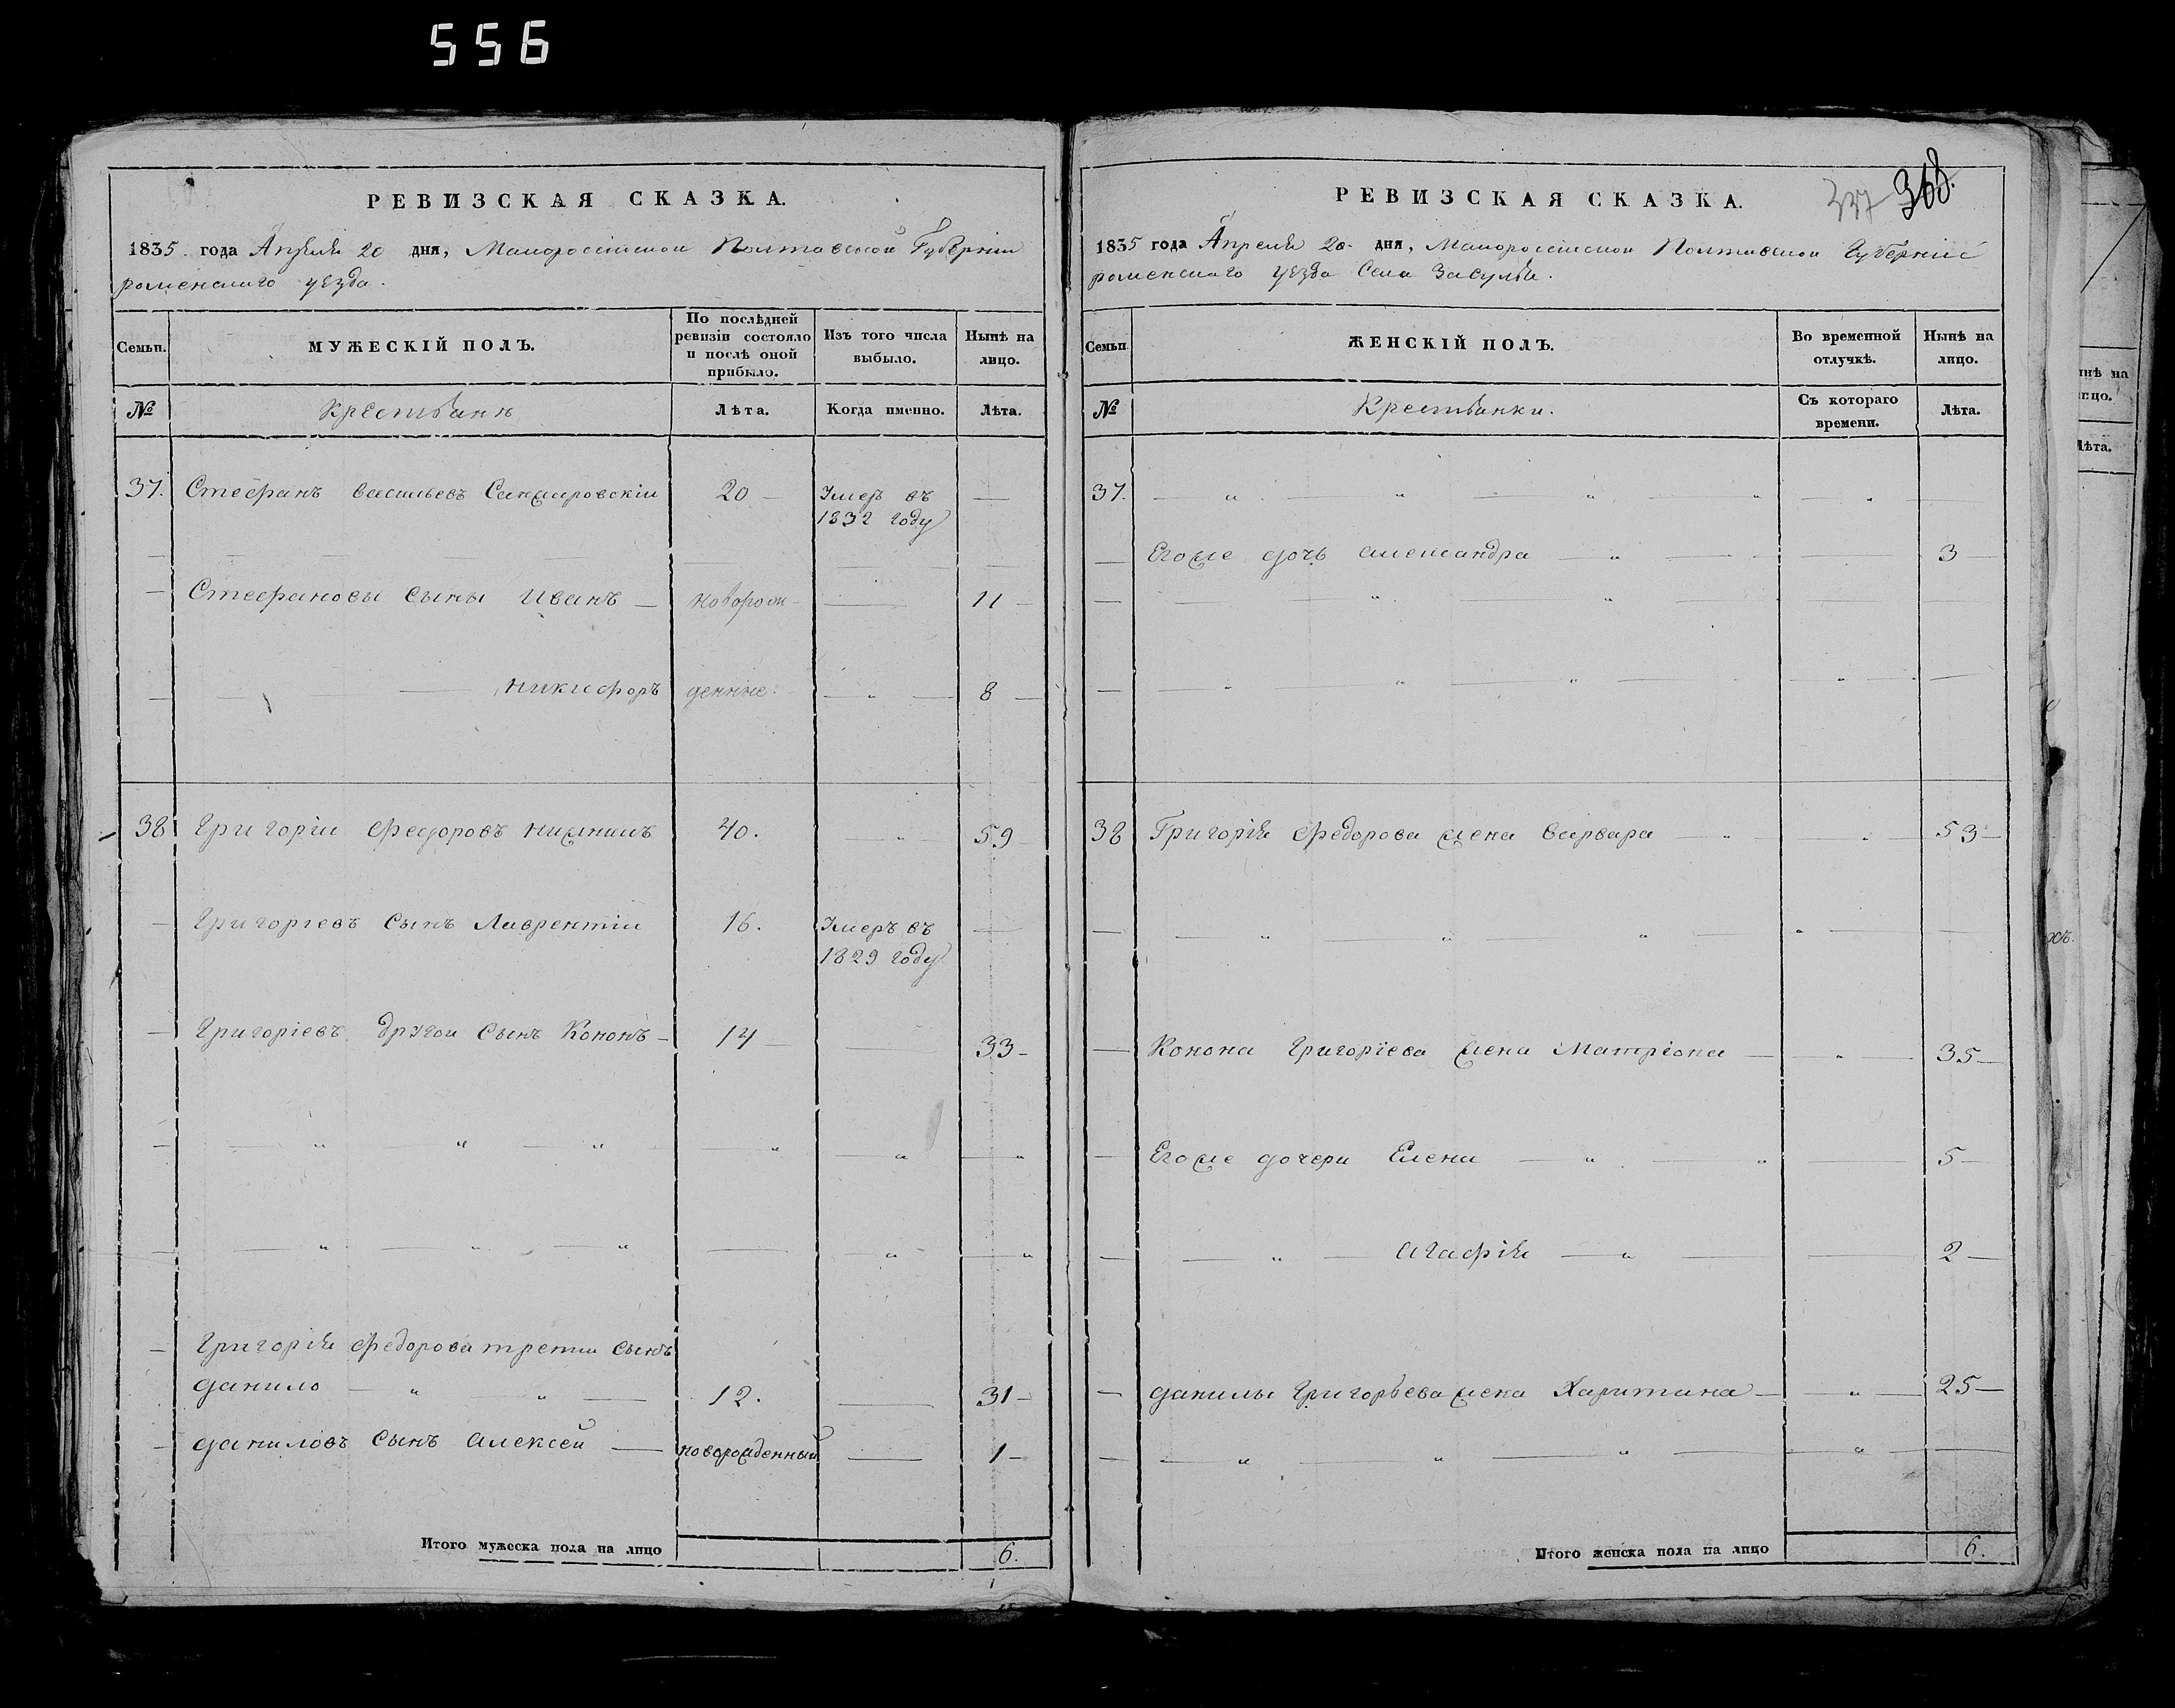 556
РЕВИЗСКАЯ СКАЗКА.
1835 года Апреля 20 дня, Малороссійской Полтавской Губерніи
роменского уезда.
Семьи.
МУЖЕСКІЙ ПОЛЪ.
По послѣдней
ревизіи состояло
и послѣ оной
прибыло.
Изъ того числа
выбыло.
Нынѣ на
лицо.
№
Крестьянѣ
Лѣта.
Когда именно.
Лѣта.
37. Стефанъ васильевъ 20 Умеръ въ
1832 году
Стефановы Сыны Иванъ новорож 11
никифоръ денные. 8
38 Григорій Федоровъ 40. 59
Григоріевъ Сынъ Лаврентій 16. Умеръ въ
1829 году
Григоріевъ другой Сынъ Кононъ 14 33
Григорія Федорова третій Сынъ
данило 12. 31
даниловъ Сынъ Алексей новорожденный 1
Итого мужеска пола на лицо 6.
РЕВИЗСКАЯ СКАЗКА.
337 368.
1835 года Апреля 20 дня, Малороссійской Полтавской Губерніи
роменского уезда Села Засулья.
Семьи
ЖЕНСКІЙ ПОЛЪ.
Во временной
отлучкѣ.
Нынѣ на
лицо.
№
Крестьянки.
Съ котораго
времени.
Лѣта.
37.
Егоже дочь александра 3
38 Григорія Федорова жена варвара 53
Конона Григоріева жена Матріона 35
Егоже дочери Елена 5
Агафія 2
данилы Григорьева жена Харитина 25
Итого женска пола на лицо 6.
Лѣта.